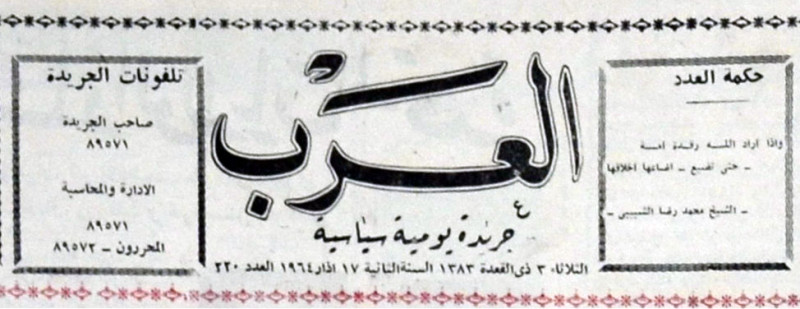 حكمة العدد
واذا اراد اللـه رقدة امة
ـ حتى تضيع ـ اضاعها اخلاقها
ـ الشيخ محمد رضا الشبيبي ـ
العرب
٤
جريدة يومية سياسية
الثلاثاء ٣ ذي القعدة ١٣٨٣ السنة الثانية ١٧ اذار ١٩٦٤ العدد ٢٢٠
تلفونات الجريدة
صاحب الجريدة
٨٩٥٧١
الادارة والمحاسبة
٨٩٥٧١
المحررون ـ ٨٩٥٧٢